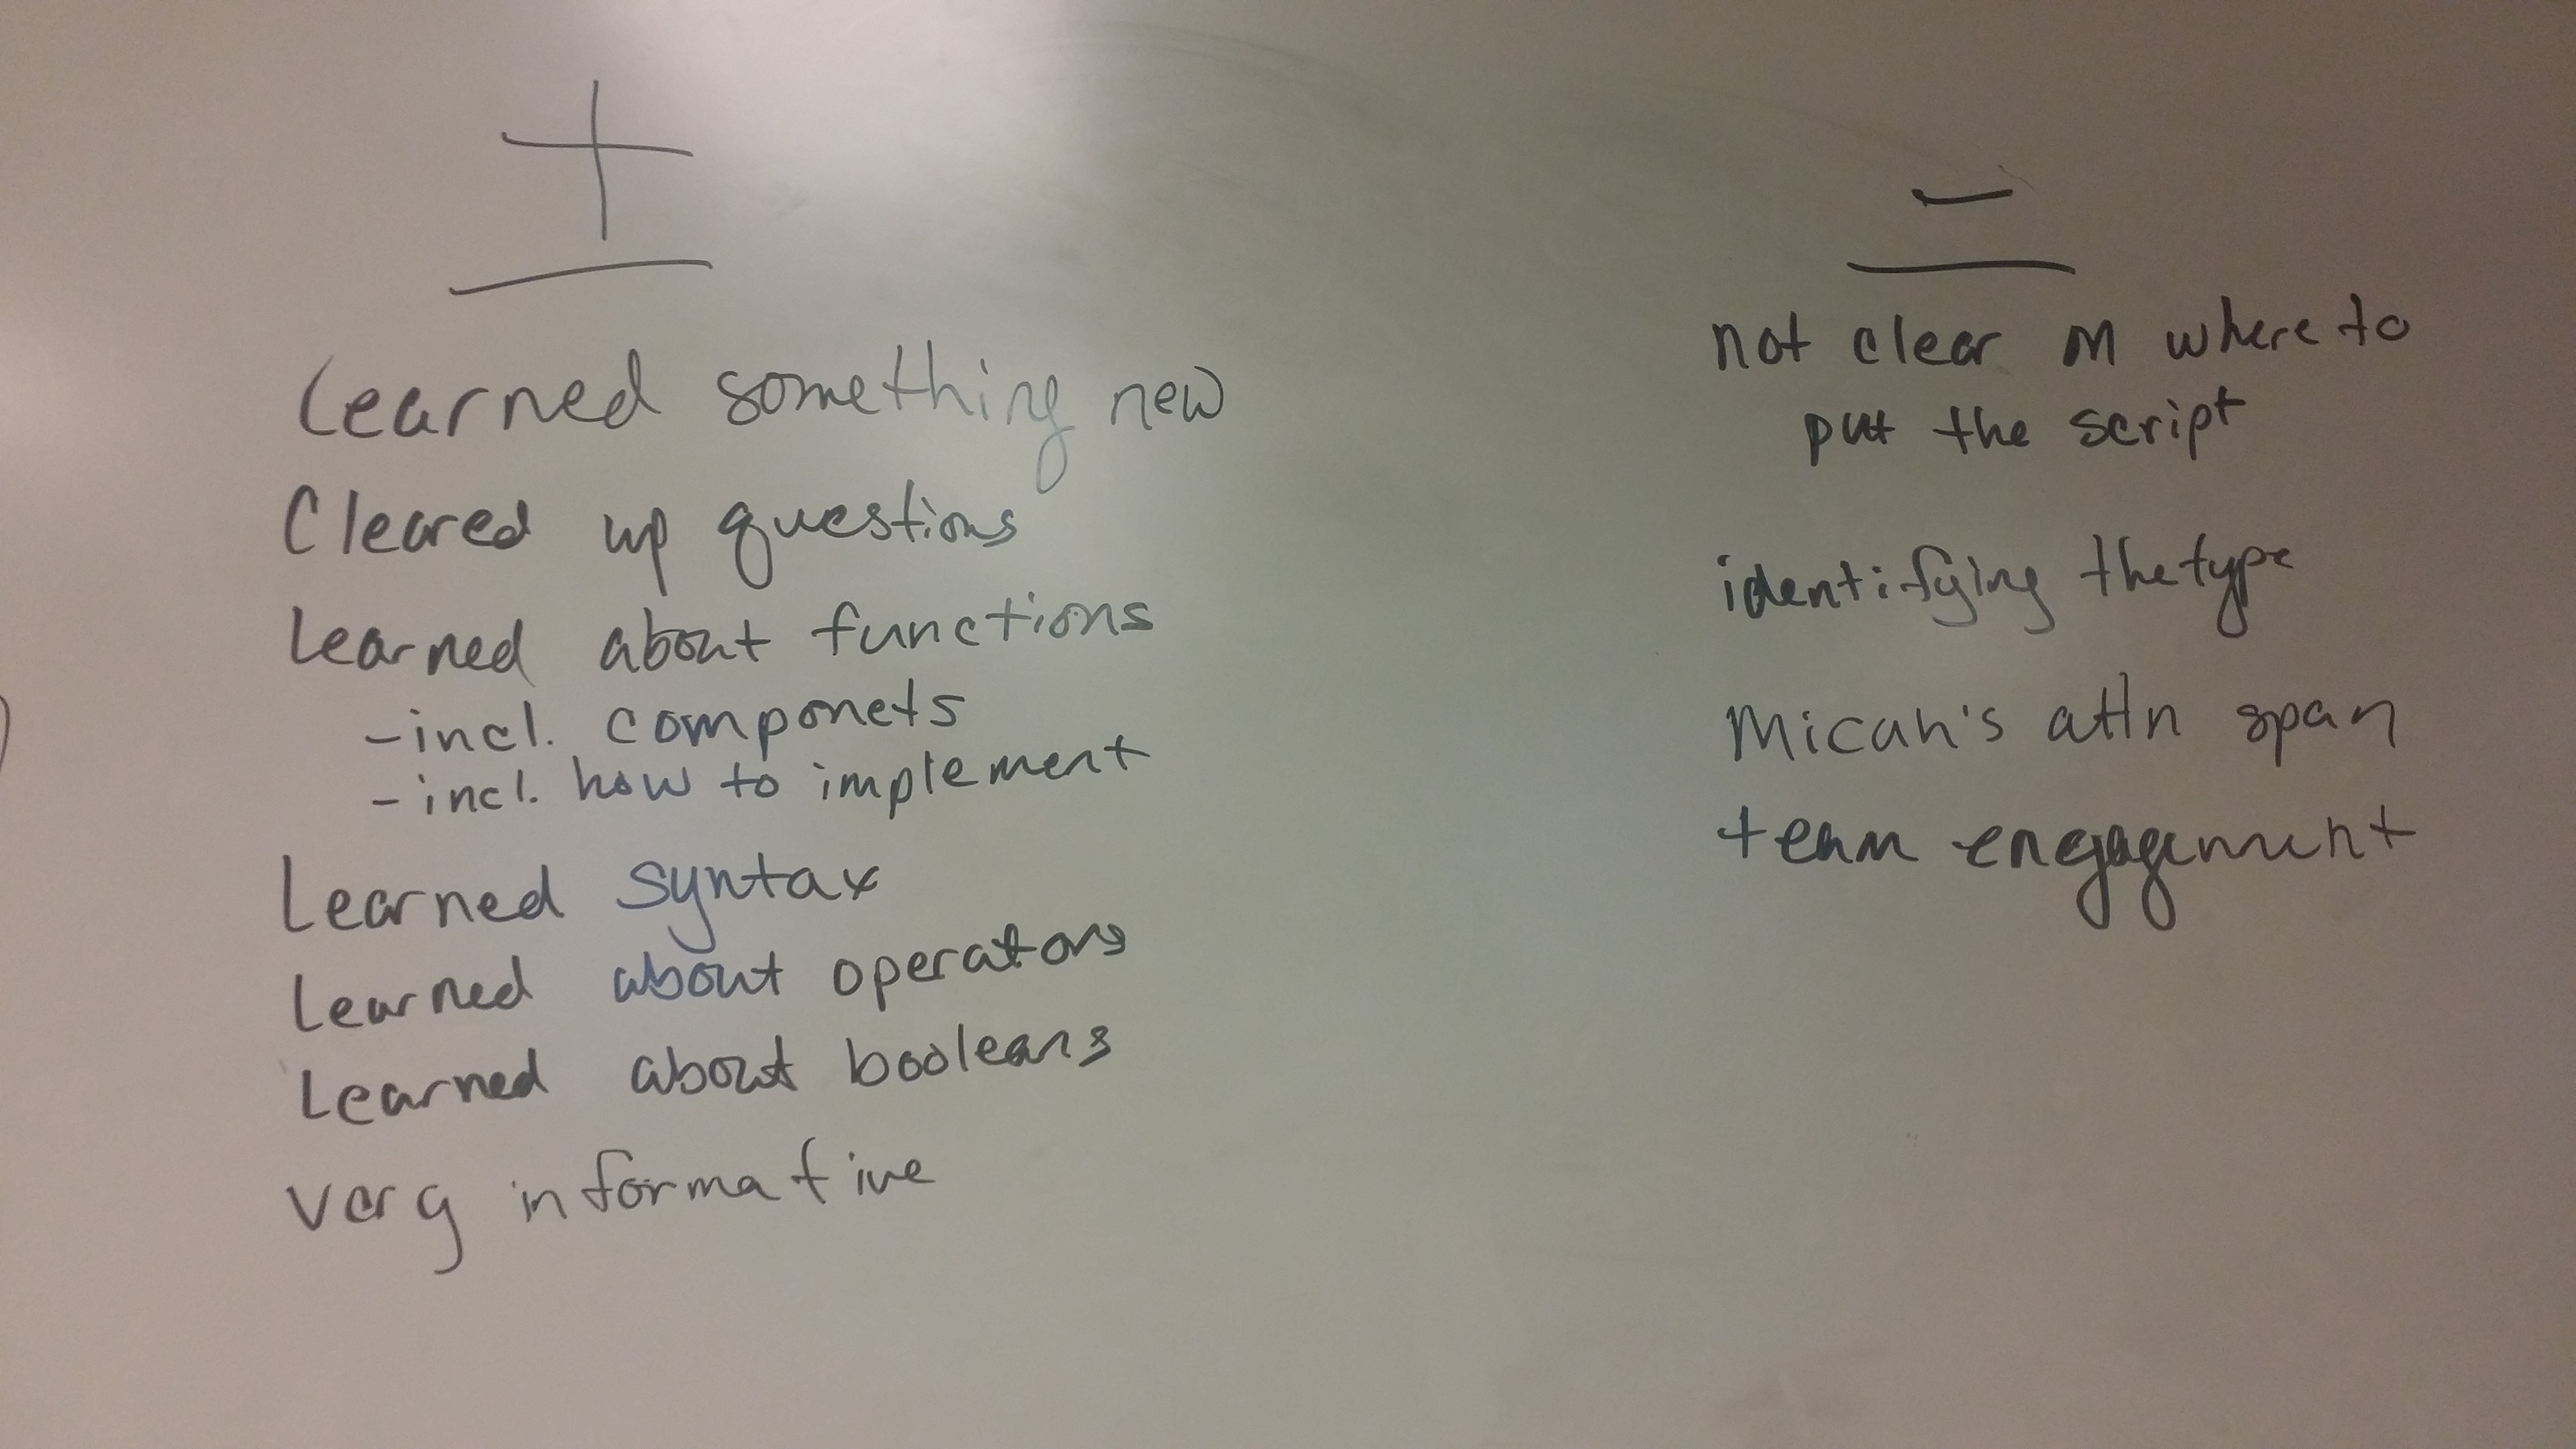 +
Learned something new
Cleared up questions
Learned about functions
- incl. componets
- incl. how to implement
Learned syntax
Learned about operators
Learned about booleans
very informative
-
not clear on where to
put the script
identifying the type
Micah's attn span
team engagement